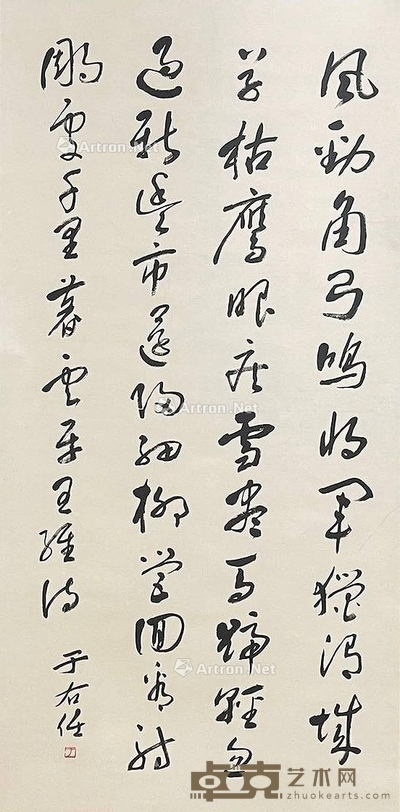 風勁角弓鳴將軍獵渭城
草枯鷹眼疾雪盡馬蹄輕忽
過新豐市還歸細柳營回看射
鵰處千里暮雲平王維詩
于右任
Artron.Net
Artron.Net
Artron.Net
Artron.Net
Artron.Net
卓克艺术网
zhuokearts.com